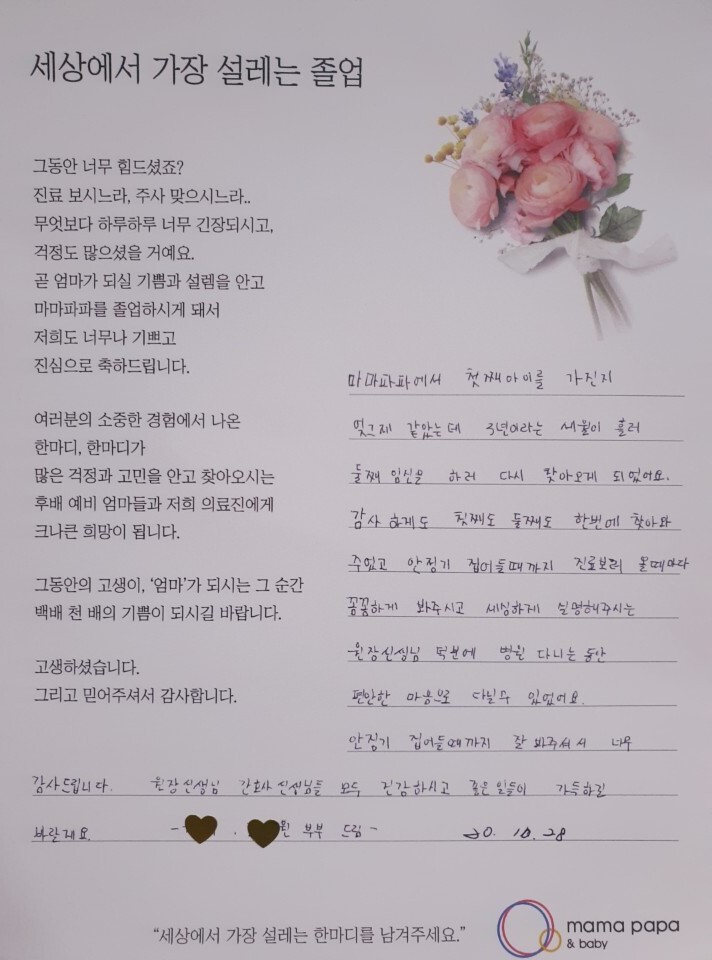 세상에서 가장 설레는 졸업
그동안 너무 힘드셨죠?
진료 보시느라, 주사 맞으시느라..
무엇보다 하루하루 너무 긴장되시고,
걱정도 많으셨을 거예요.
곧 엄마가 되실 기쁨과 설렘을 안고
마마파파를 졸업하시게 돼서
저희도 너무나 기쁘고
진심으로 축하드립니다.
여러분의 소중한 경험에서 나온
한마디, 한마디가
많은 걱정과 고민을 안고 찾아오시는
후배 예비 엄마들과 저희 의료진에게
크나큰 희망이 됩니다.
그동안의 고생이, '엄마'가 되시는 그 순간
백배 천 배의 기쁨이 되시길 바랍니다.
고생하셨습니다.
그리고 믿어주셔서 감사합니다.
마마파파에서 첫째아이를 가진지
엊그제 같았는데 3년이라는 세월이 흘러
둘째 임신을 하러 다시 찾아오게 되었어요.
감사하게도 첫째도 둘째도 한번에 찾아와
주었고 안정기 접어들때까지 진료보러 올때마다
꼼꼼하게 봐주시고 세심하게 설명해주시는
원장선생님 덕분에 병원 다니는 동안
편안한 마음으로 다닐수 있었어요.
안정기 접어들때까지 잘 봐주셔서 너무
감사드립니다. 원장선생님 간호사 선생님들 모두 건강하시고 좋은 일들이 가득하길
바랄게요. 부부 드림 - 20. 10. 28
"세상에서 가장 설레는 한마디를 남겨주세요."
mama papa
& baby